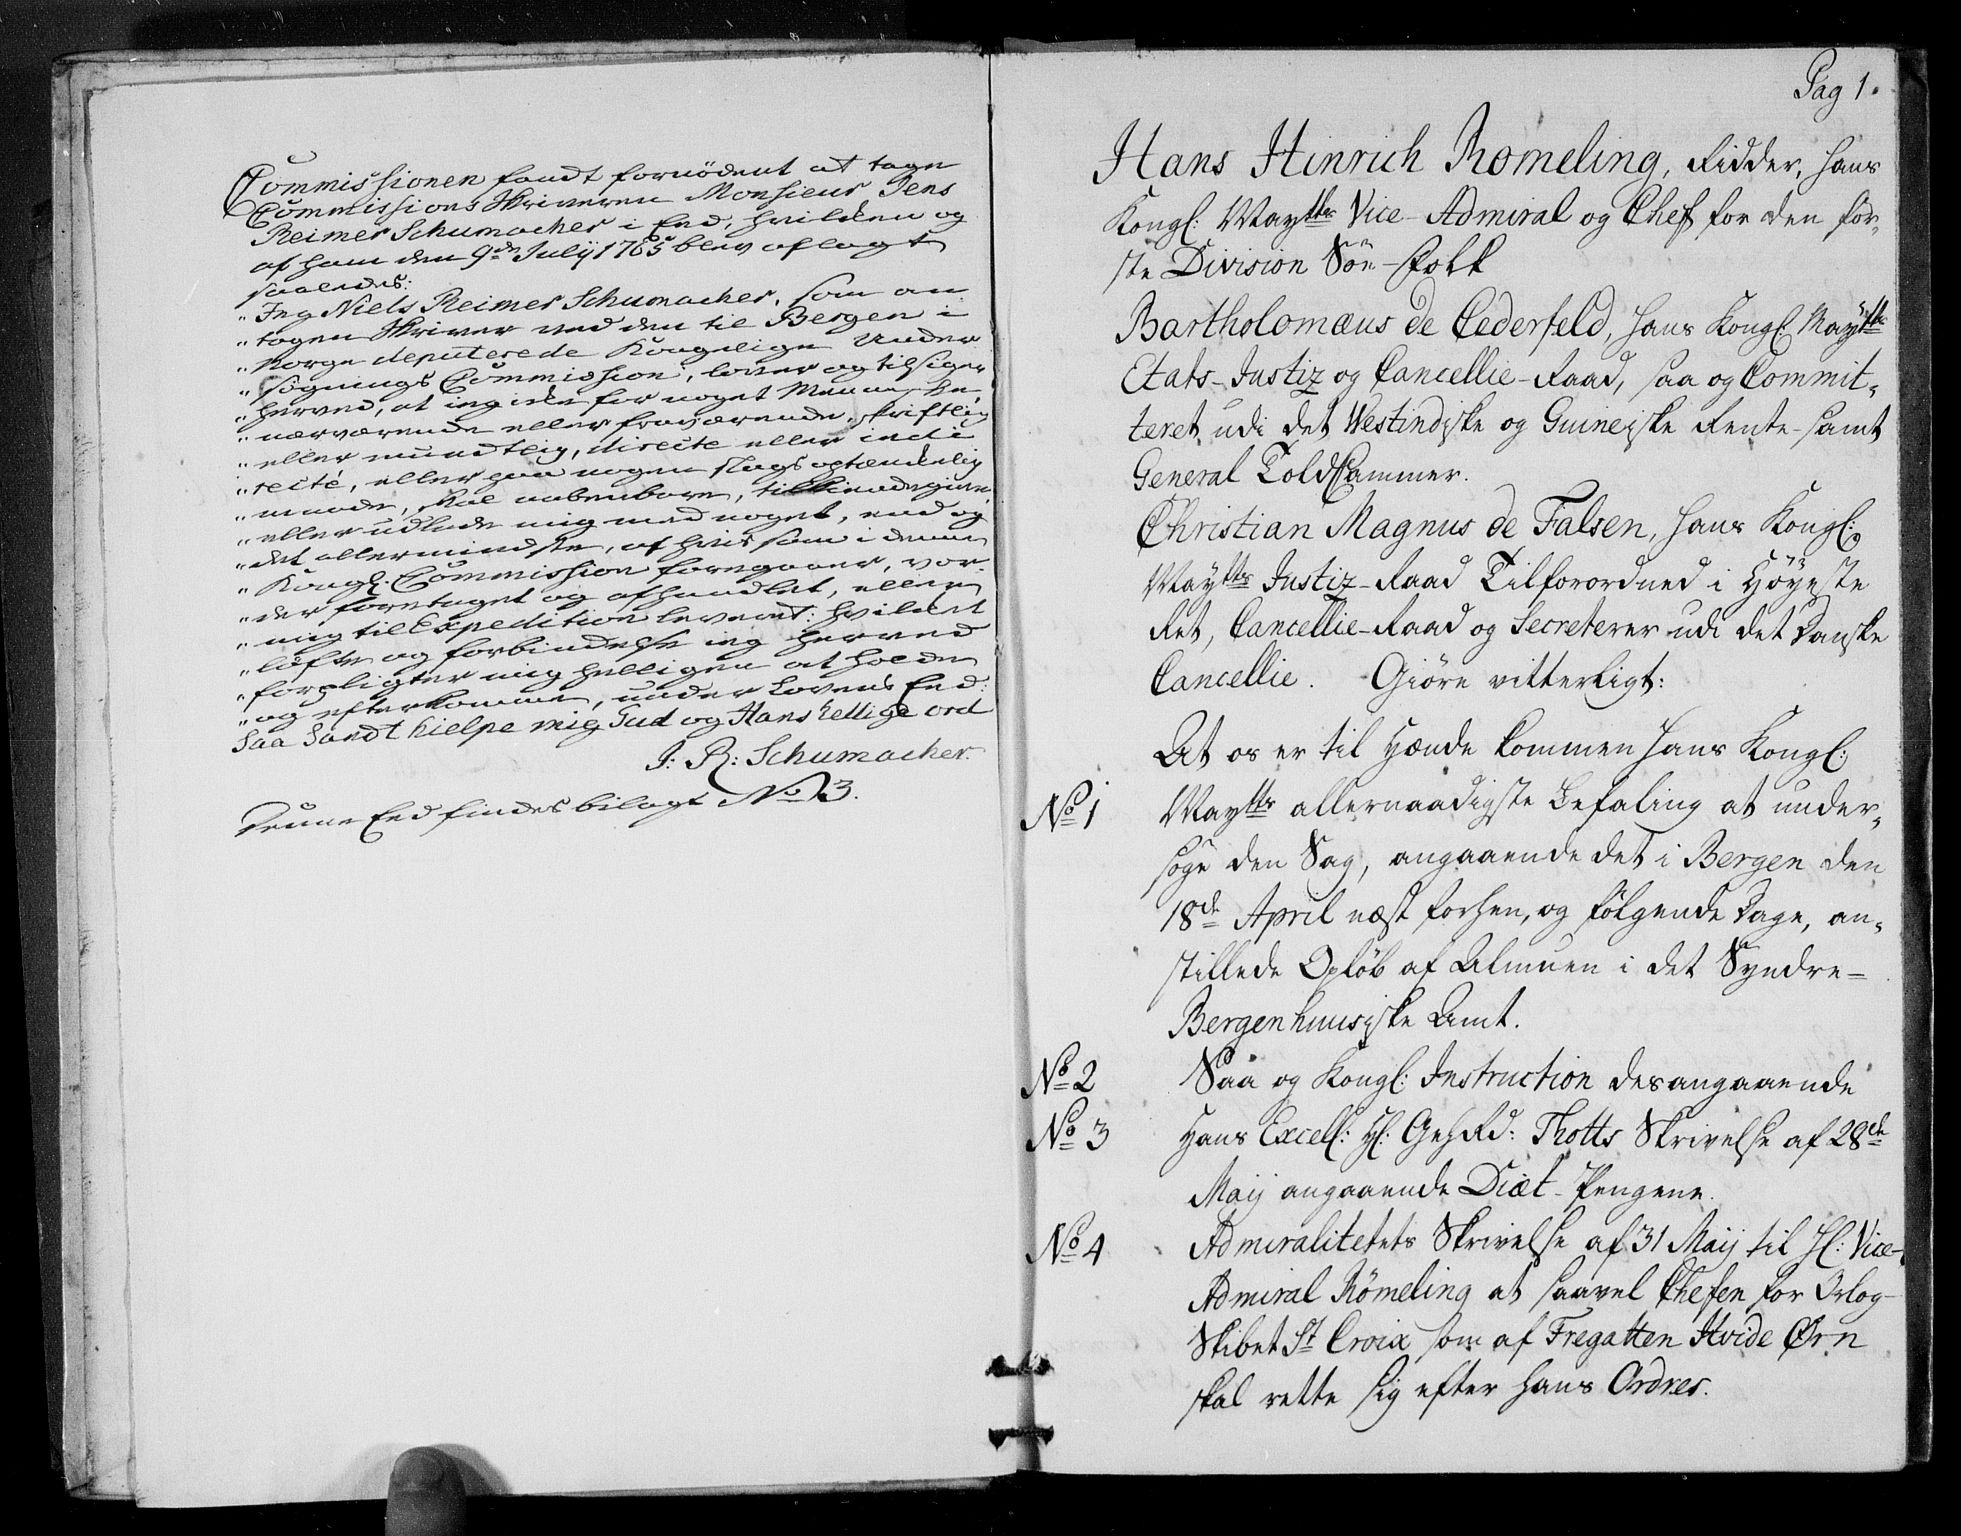 Commissionen fandt fornödent at tage
Commissions Skriveren Monsieur Jens
Reimer Schumacher i Eed, hvilken og
af ham den 9de Julÿ 1765 blev aflagt
saaledes:
" Jeg Niels Reimer Schumacher, som an-
" tagen Skriver ved den til Bergen i
" Norge deputerede Kongelige Under
" søgnings Commission, lover og tilsiger
" herved, at jeg icke for noget Menniske
" nærværende eller fraværende, skriftlig
" eller mundtlig, directe eller indi
" recte, eller paa nogen slags optænkelig
" maade, skal aabenbare, tilkiendegive
" eller udlade mig med noget, end og
" det allermindste, af hvis som i denne
" Kongl. Commission foregaaer, vor-
" der foretaget og afhandlet, eller
" mig til Expedition leveret: hvilket
" löfte og forbindelse jeg herved
" forpligter mig helligen at holde
" og efterkomme, under Lovens Eed:
Saa Sandt hielpe mig Gud og Hans hellige ord
J: R: Schumacher.
Denne Eed findes bilagt No 3.
Pag 1.
Hans Hinrich Romeling, Ridder, Hans
Kongl: Mayts Vice-Admiral og Chef for den för-
ste Division Söe-Folk
Bartholomæus de Cederfeld, Hans Kongl. Maÿts
Etats-Justiz og Cancellie-Raad, saa og Commit-
teret udi det Westindiske og Guineiske Rente- samt
General ToldCammer.
Christian Magnus de Falsen, Hans Kongl:
Maÿts Justiz-Raad Tilforordned i Höyeste
Ret, Cancellie-Raad og Secreterer udi det Danske
Cancellie. Giöre vitterligt:
At os er til Hænde kommen Hans Kongl:
No 1 Mayts allernaadigste Befaling at under-
søge den Sag, angaaende det i Bergen den
18de April næst forhen, og fölgende Dage, an-
stillede Opløb af Almuen i det Syndre-
Bergenhuusiske Amt.
No 2 Saa og Kongl: Instruction desangaaende
No 3 Hans Excell: Hr: GehRd: Thotts Skrivelse af 28de
Maij angaaende Diæt-Pengene.
No 4 Admiralitetets Skrivelse af 31 Maij til Hr: Vice-
Admiral Römeling at saavel Chefen for Orlog-
Skibet St Croix som af Fregatten Hvide Ørn
skal rette sig efter hans Ordres.